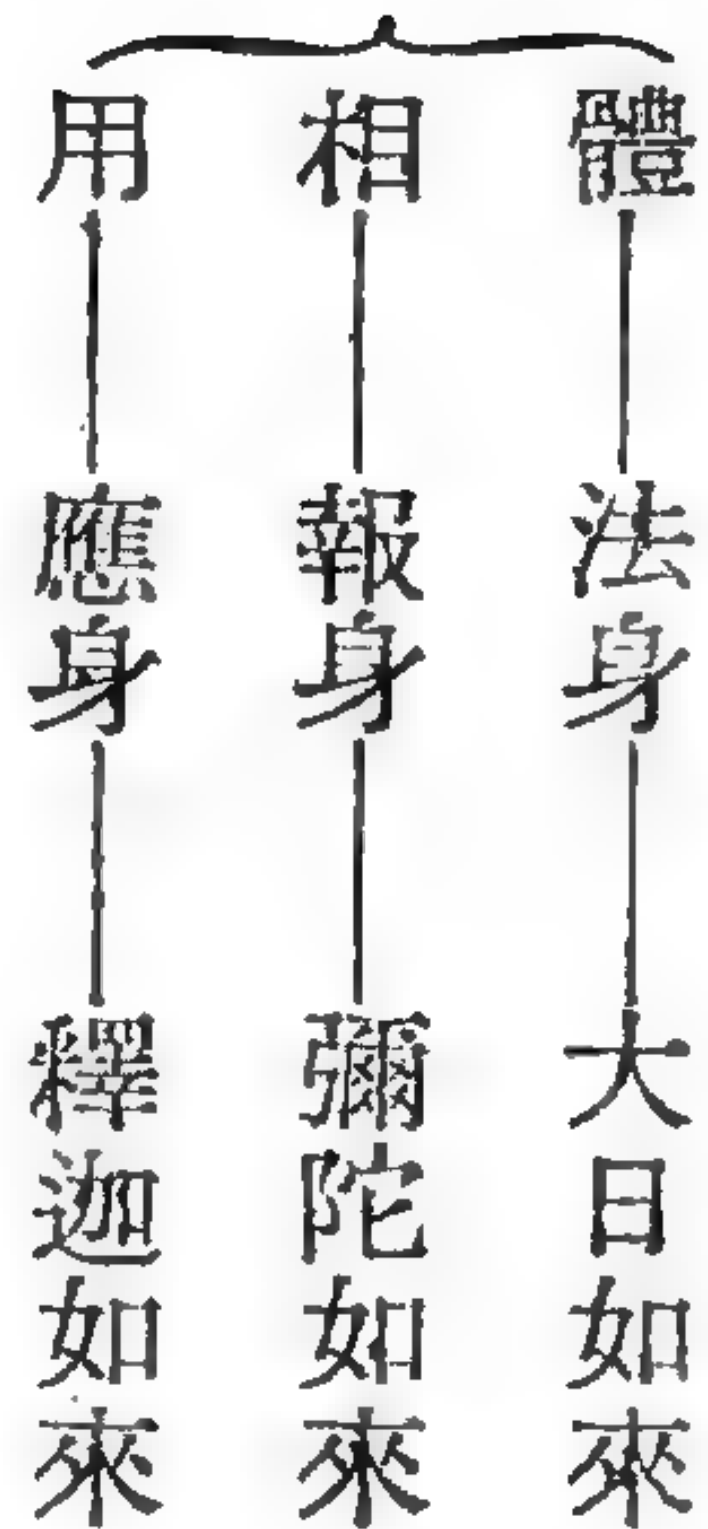 體 法身 大日如來
相 報身 彌陀如來
用 應身 釋迦如來